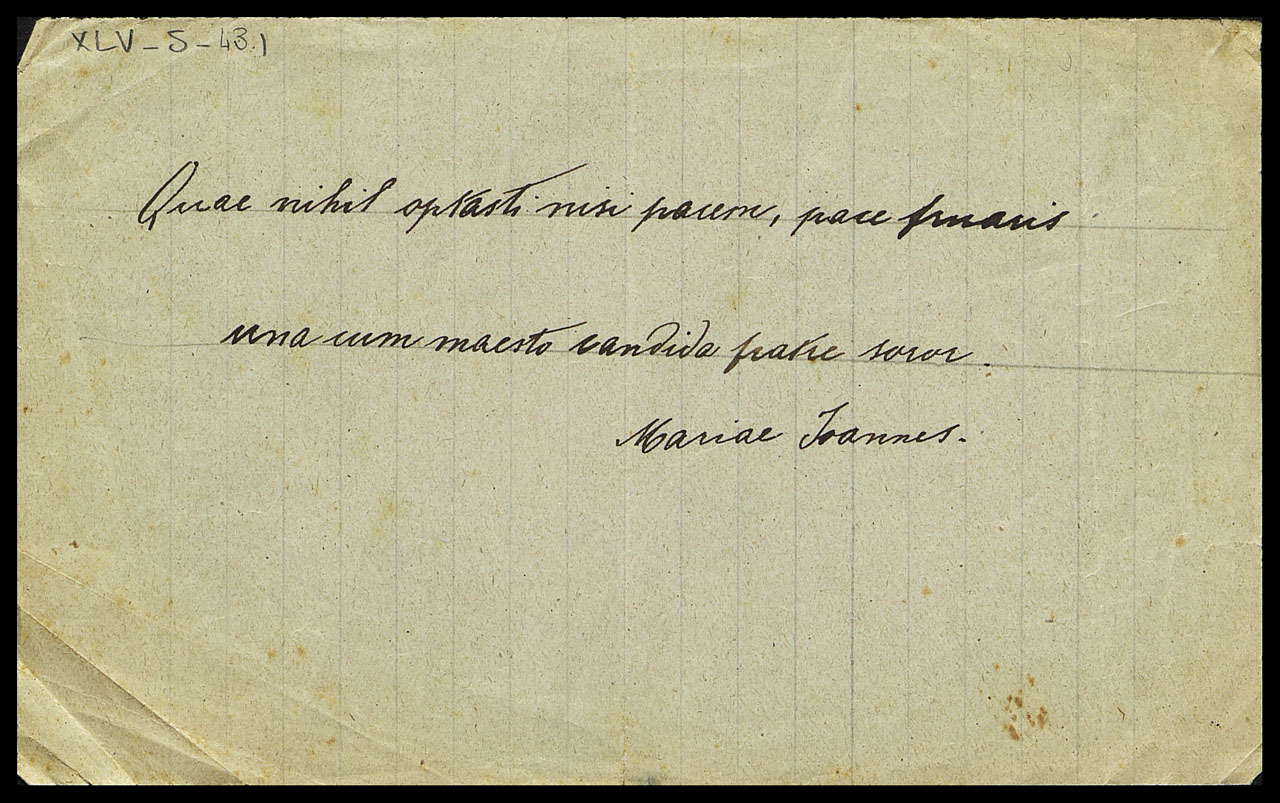 XLV-5-43.1
Quae nihil optasti nisi pacem, pace fruaris
una cum maesto candida fratre soror.
Mariae Ioannes.